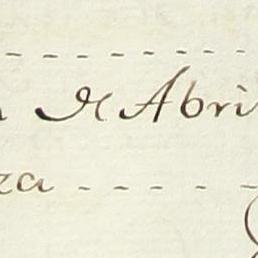 de Abri
za